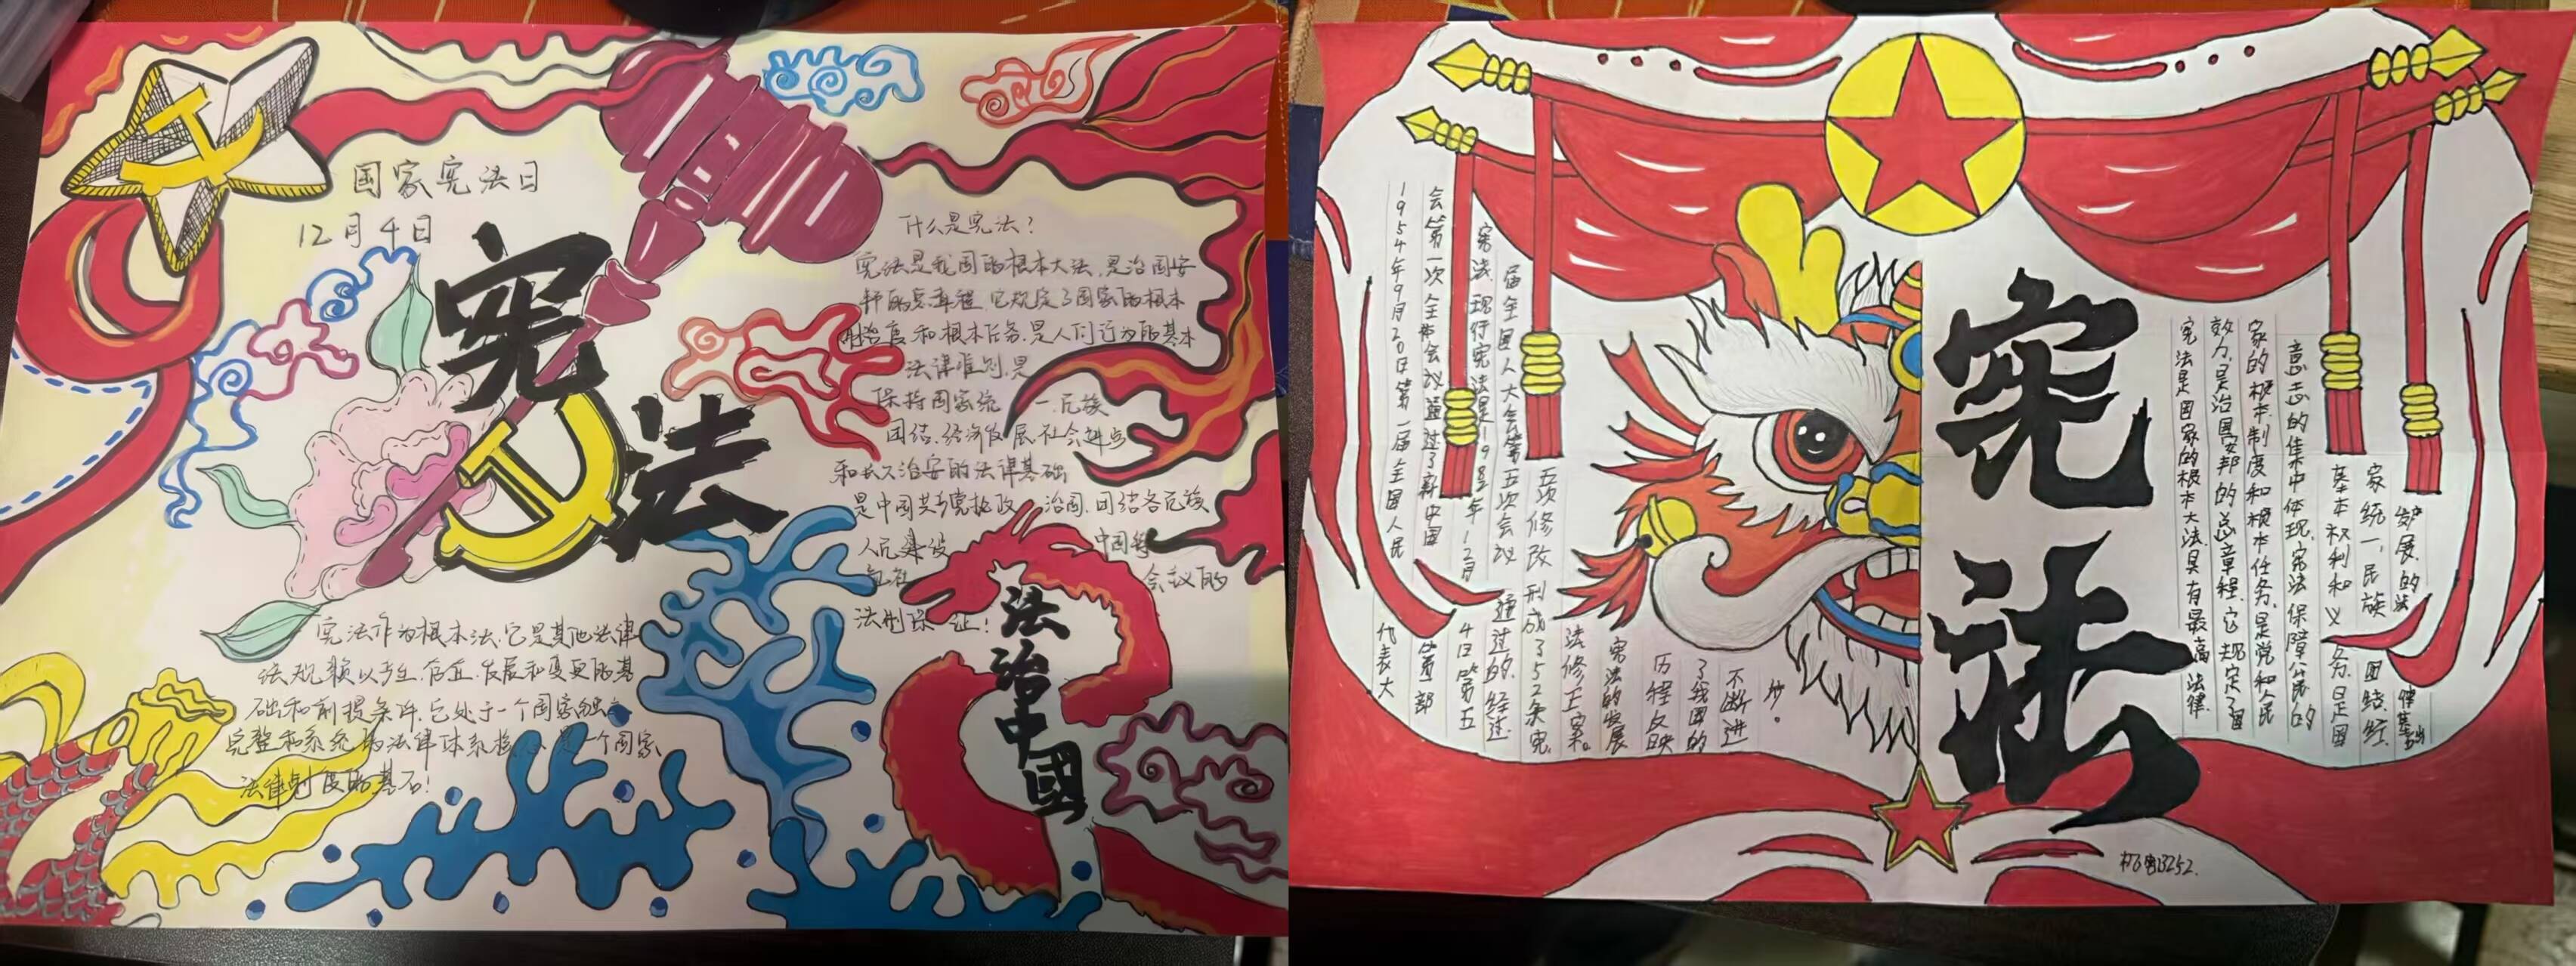 国家宪法日
12月4日
宪法
什么是宪法?
宪法是我国的根本大法,是治国安
邦的总章程,它规定了国家的根本
制度和根本任务,是人们行为的基本
法律准则,是
保持国家统一、民族
团结、经济发展、社会进步
和长久治安的法律基础
是中国共产党执政治国,团结各民族
人民建设中国特
会议的
法制保证!
法治中國
宪法作为根本法,它是其他法律
法规赖以产生、存在、发展和变更的基
础和前提条件,它处于一个国家独立
完整和系统的法律体系核 是一个国家
法律制度的基石!
宪法
宪法是国家的根本大法具有最高法律
效力,是治国安邦的总章程,它规定了国
家的根本制度和根本任务,是党和人民
意志的集中体现,宪法保障公民的
基本权利和义务,是国
家统一,民族团结,经
发展的法律基础
1954年9月20日第一届全国人民代表大
会第一次全体会议通过了新中国第一部
宪法,现行宪法是1982年12月4日第五
届全国人大会第五次会议通过的,经过
五次修改形成了52条宪
法修正案。
宪法的发展
历程反映
了我国的
不断进
步。